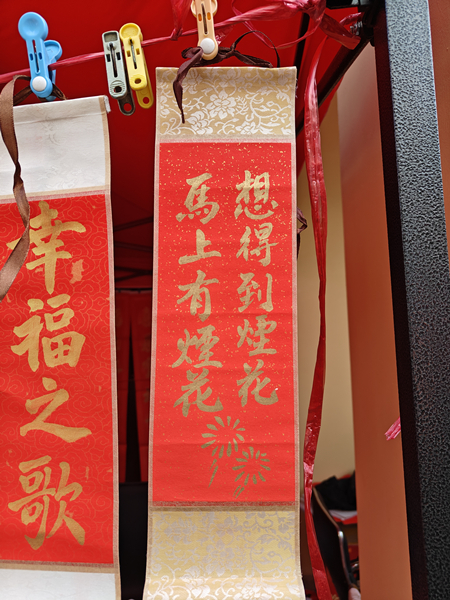 想得到煙花
馬上有煙花
幸福之歌